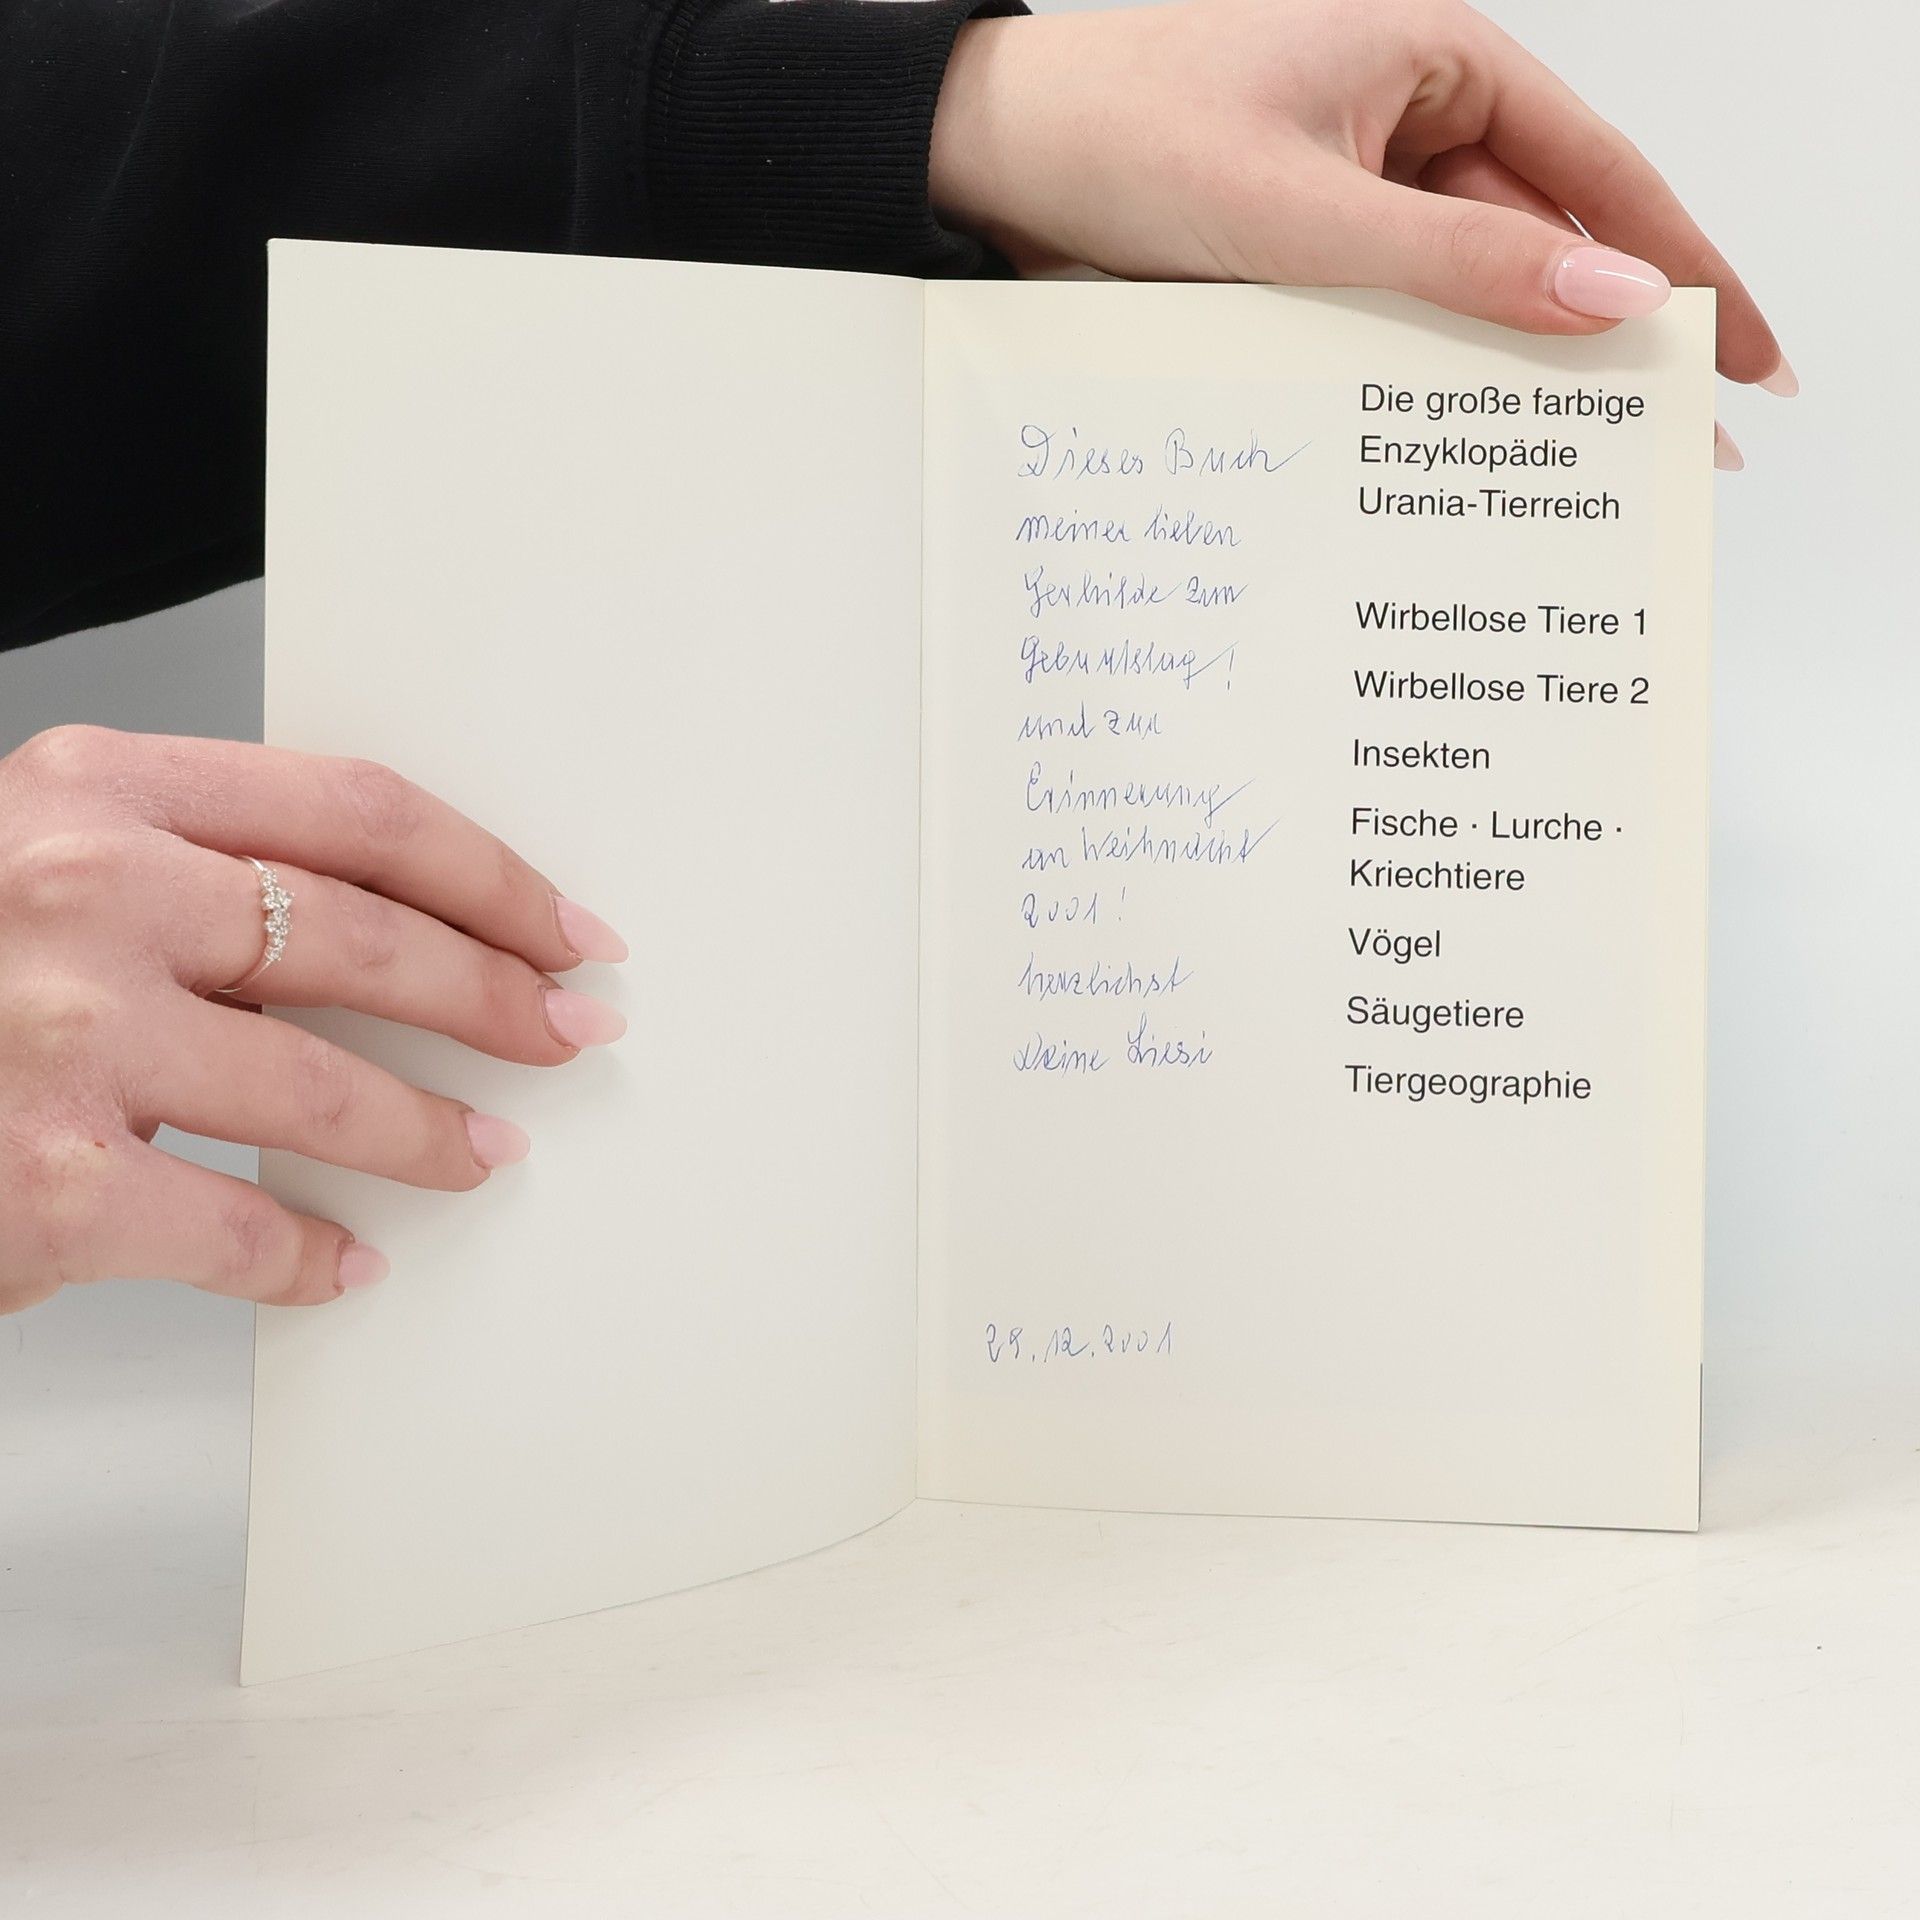 Dieses Buch
meiner lieben
Gerhilde zum
Geburtstag!
und zur
Erinnerung
an Weihnacht
2001!
herzlichst
Deine Liesi
29.12.2001
Die große farbige
Enzyklopädie
Urania-Tierreich
Wirbellose Tiere 1
Wirbellose Tiere 2
Insekten
Fische · Lurche ·
Kriechtiere
Vögel
Säugetiere
Tiergeographie